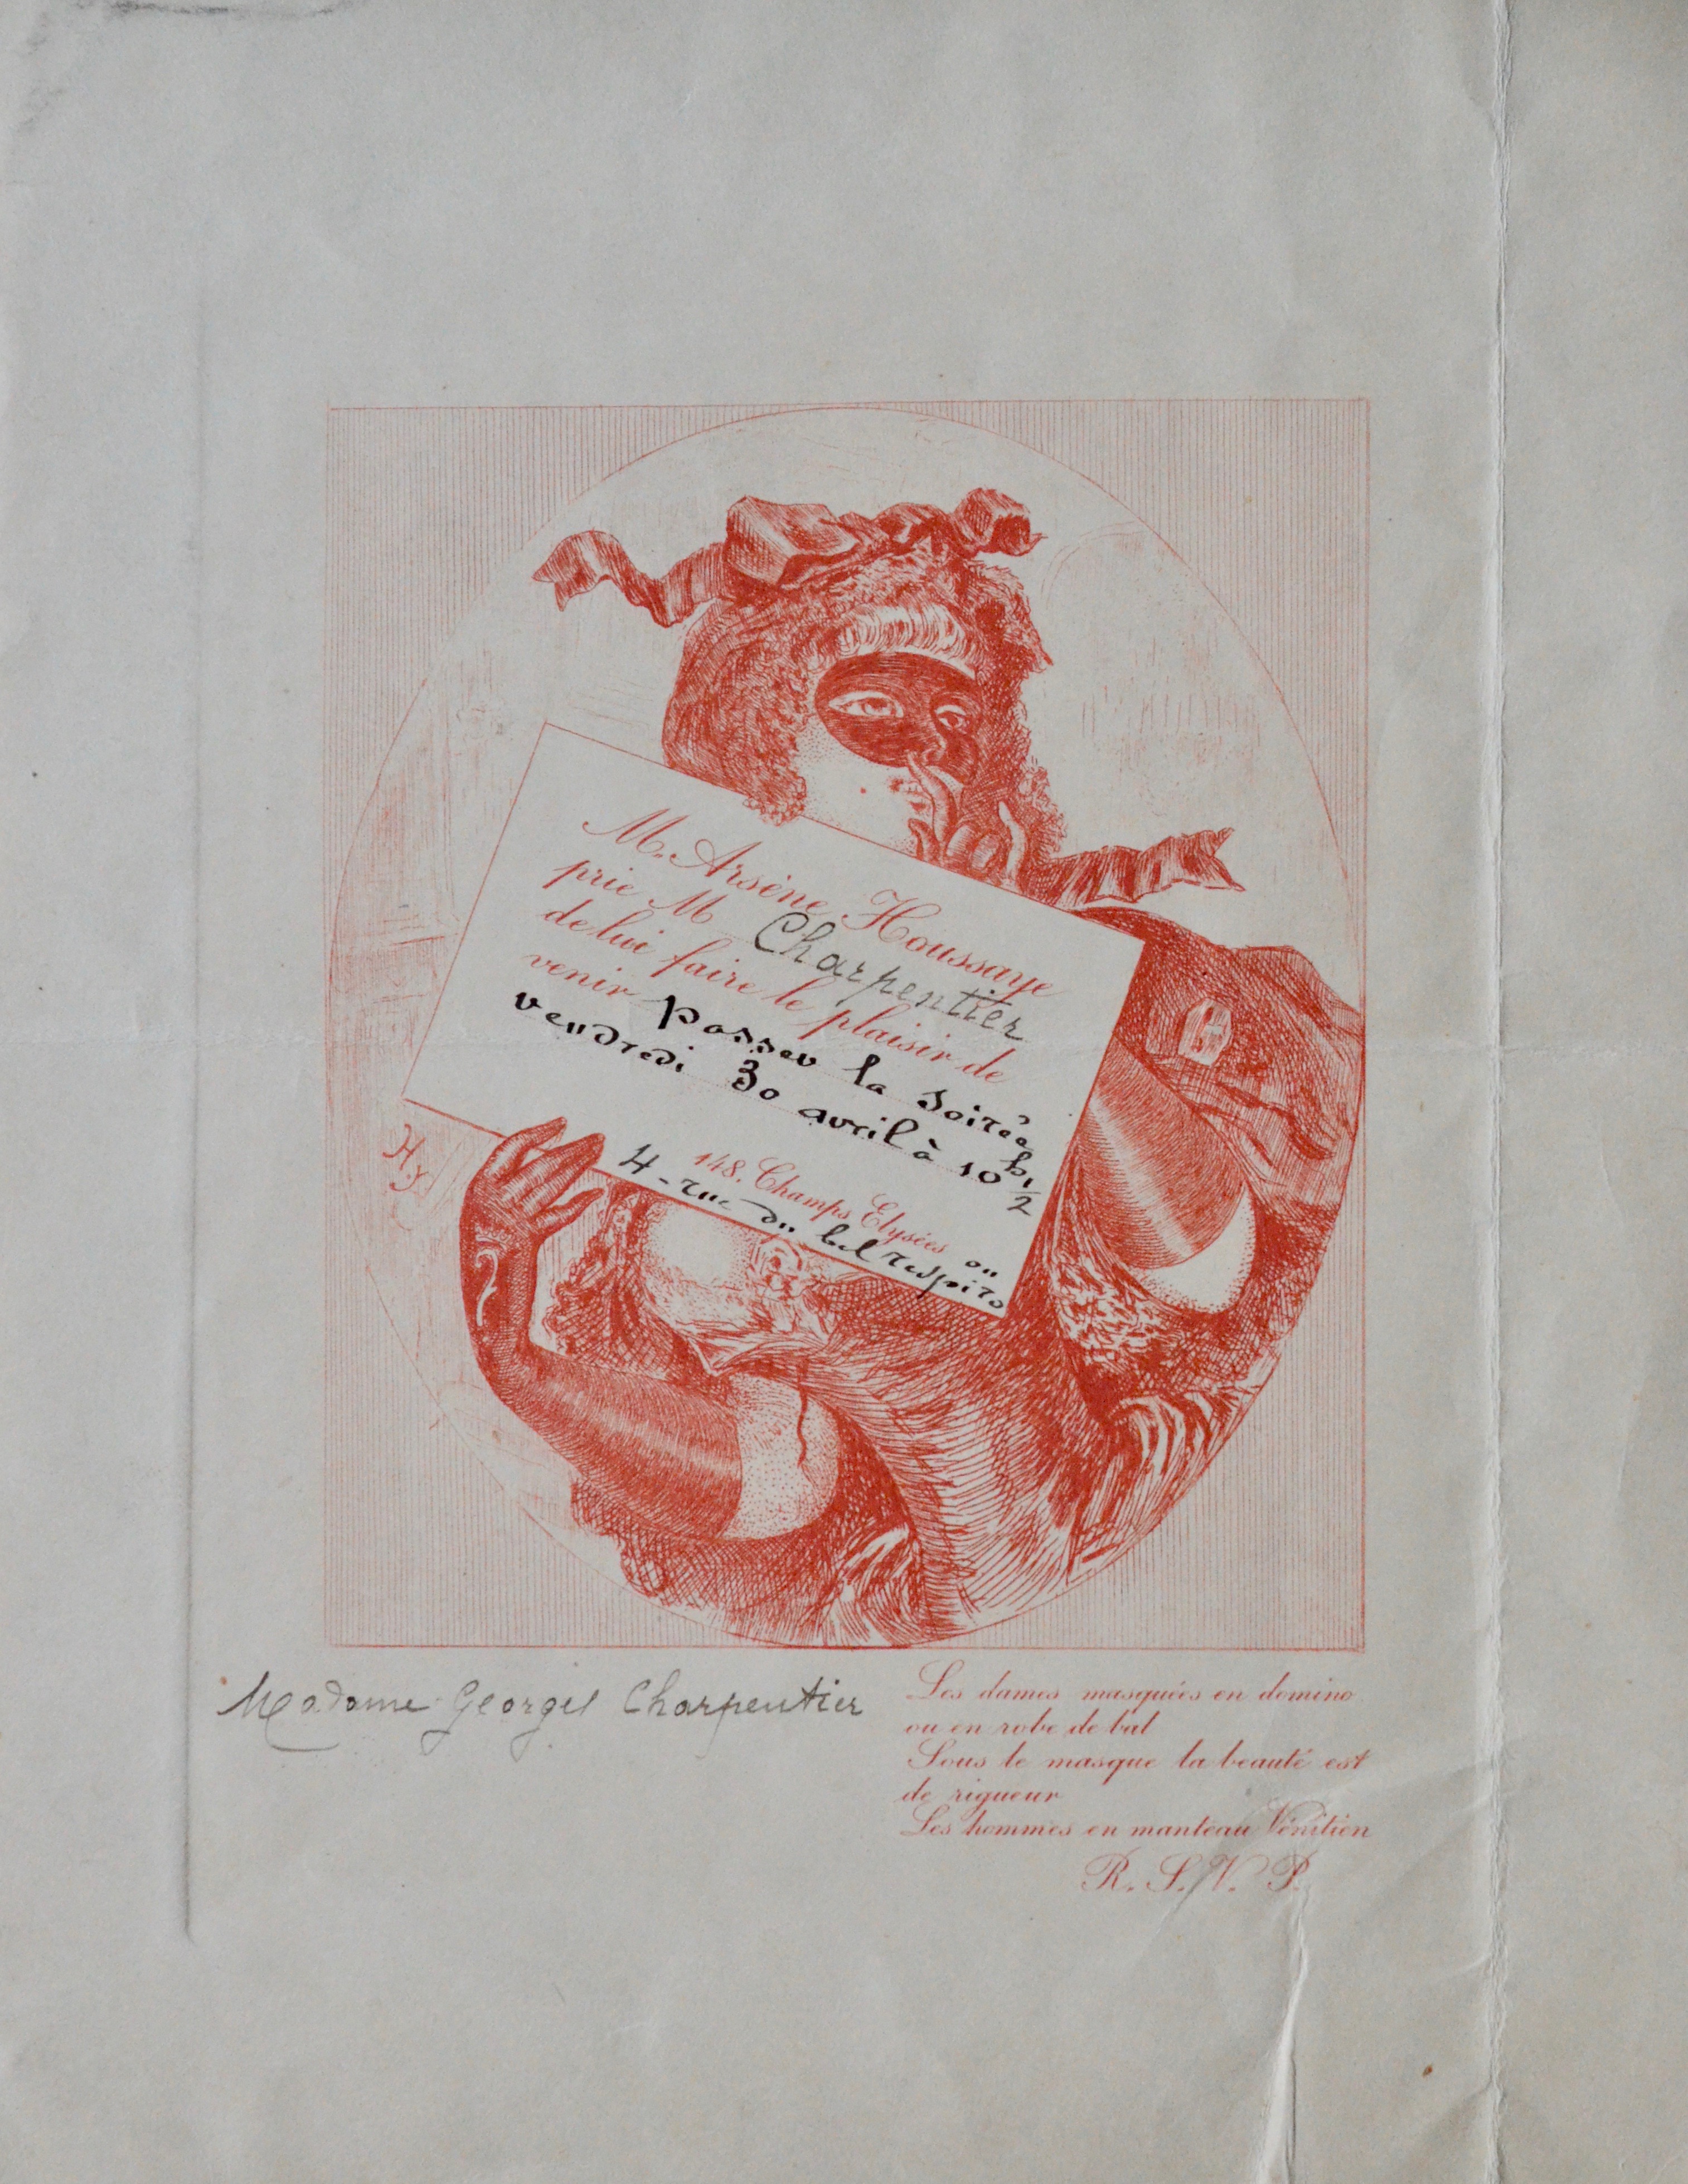 M. Arsène Houssaye
prie M Charpentier
de lui faire le plaisir de
venir passer la soirée
vendredi 30 avril à 10 h 1/2
148. Champs Elysées ou
4 - rue du bel respiro
Hy
Madame Georges Charpentier
Les dames masquées en domino
ou en robe de bal
Sous le masque la beauté est
de rigueur
Les hommes en manteau Vénitien
R. S. V. P.